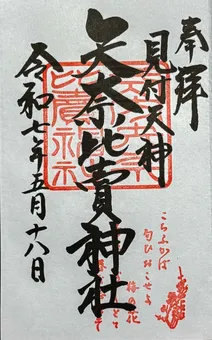 奉拝
見付天神
矢奈比賣神社
令和七年五月十八日
こちふかば
匂ひおこせよ
梅の花